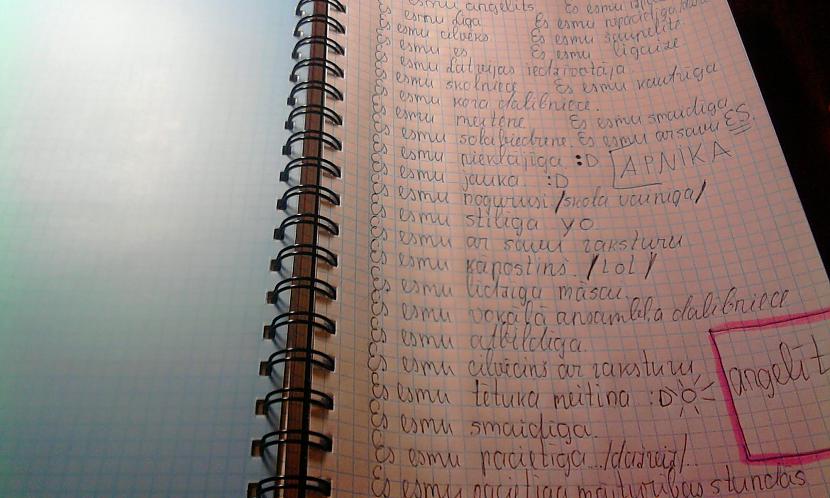 esmu angelīts Es esmu
Es esmu Līga Es esmu
Es esmu cilvēks Es esmu
Es esmu es Es esmu
Es esmu Latvijas iedzīvotāja.
Es esmu skolniece Es esmu kautrīga
Es esmu kora dalībniece.
Es esmu meitene Es esmu smaidīga
Es esmu sola biedrene. Es esmu ar savu ES.
Es esmu piekļājīga :D APNIKA
Es esmu jauka. :D
Es esmu nogurusi /skola vainīga/
Es esmu stilīga yo.
Es esmu ar savu raksturu
Es esmu kāpostiņš. /Lol/
Es esmu līdzīga māsai.
Es esmu vokālā ansambļa dalībniece
Es esmu atbildīga.
Es esmu cilvēciņš ar raksturu
Es esmu tētuka meitiņa :D
angelīt
Es esmu smaidīga.
Es esmu pacietīga../dažreiz/..
Es esmu pacietīga stundās